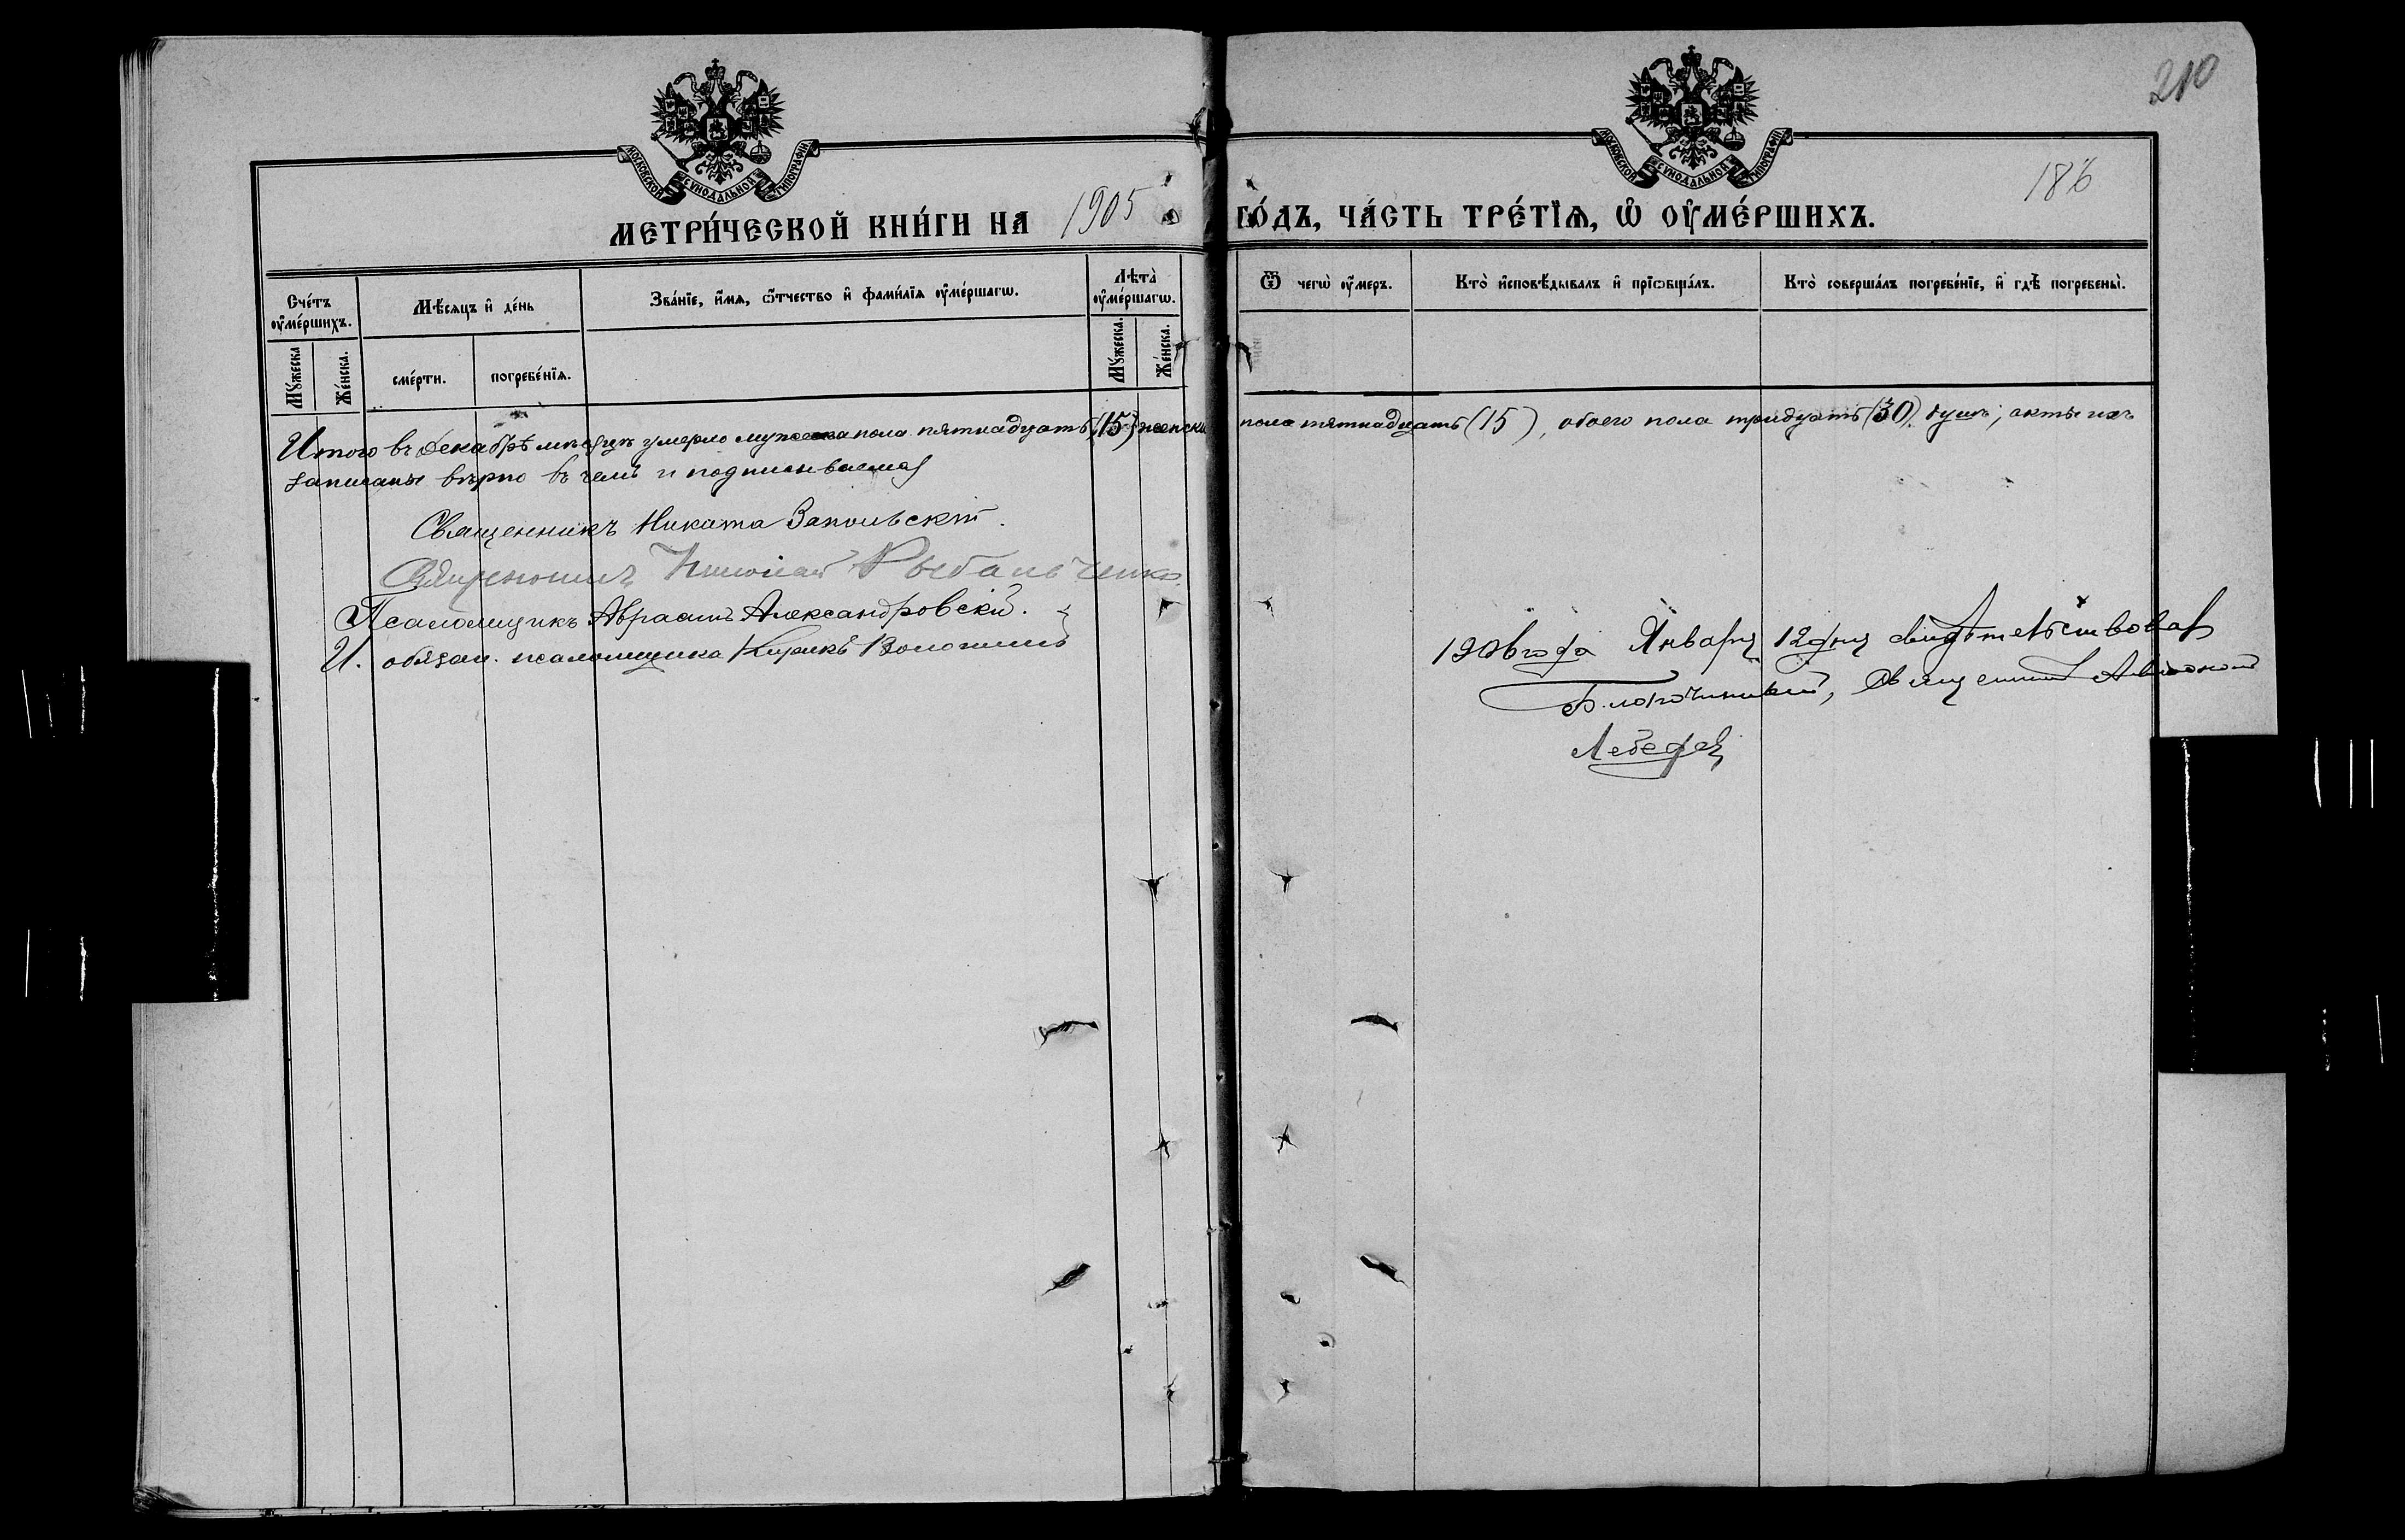 210
186
МОСКОВСКОЙ СѴНОДАЛЬНОЙ ТИПОГРАФІИ
МОСКОВСКОЙ СѴНОДАЛЬНОЙ ТИПОГРАФІИ
МЕТРИ́ЧЕСКОЙ КНИ́ГИ НА 1905 ГО́ДЪ, ЧА́СТЬ ТРЕ́ТІѦ, Ѡ҆ ОУ҆МЕ́РШИХЪ.
Сче́тъ оу҆ме́ршихъ.
Мꙋ́жеска
Же́нска.
Мѣ́сяцъ и҆ де́нь
сме́рти.
погребе́нїѧ.
Зва́нїе, и҆́мѧ, ѻ҆́тчество и҆ фами́лїѧ оу҆ме́ршагѡ.
Лѣта̀ оу҆ме́ршагѡ.
Мꙋ́жеска.
Же́нска.
Ѿ чегѡ̀ оу҆́меръ.
Кто̀ и҆сповѣ́дывалъ и҆ прїѡбща́лъ.
Кто̀ соверша́лъ погребе́нїе, и҆ гдѣ̀ погребены̀.
Итого въ Декабрѣ мѣсяцѣ умерло мужеска пола пятнадцать (15) женска пола пятнадцать (15), обоего пола тридцать (30) душъ, акты сіи
записаны вѣрно въ чемъ и подписываемся
Священникъ Никита Запольскій.
Священникъ Николай Рыбальченко.
Псаломщикъ Авраамъ Александровскій.
И. обязан. псаломщика Кирикъ Волошинъ
1906 года Января 12 дня свидѣтельствовалъ
Благочинный, Священникъ
Лебедевъ